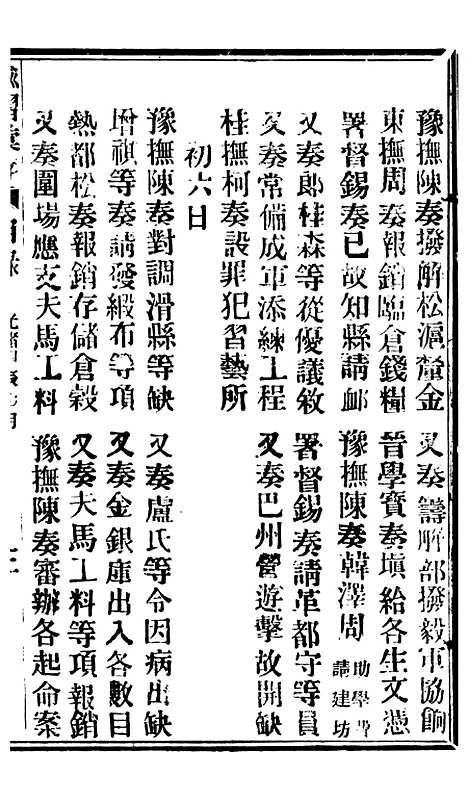 豫撫陳奏撥解松滬釐金　又奏籌解部撥毅軍協餉
東撫周奏報銷臨倉錢糧　晉學寶奏塡給各生文憑
署督錫奏已故知縣請卹　豫撫陳奏韓澤周助學費請建坊
又奏郎桂森等從優議敘　署督錫奏請革都守等員
又奏常備成軍添練工程　又奏巴州營遊擊故開缺
桂撫柯奏設罪犯習藝所
初六日
豫撫陳奏對調滑縣等缺　又奏盧氏等令因病出缺
增祺等奏請發緞布等項　又奏金銀庫出入各數目
熱都松奏報銷存儲倉穀　又奏夫馬工料等項報銷
又奏圍場應支夫馬工料　豫撫陳奏審辦各起命案